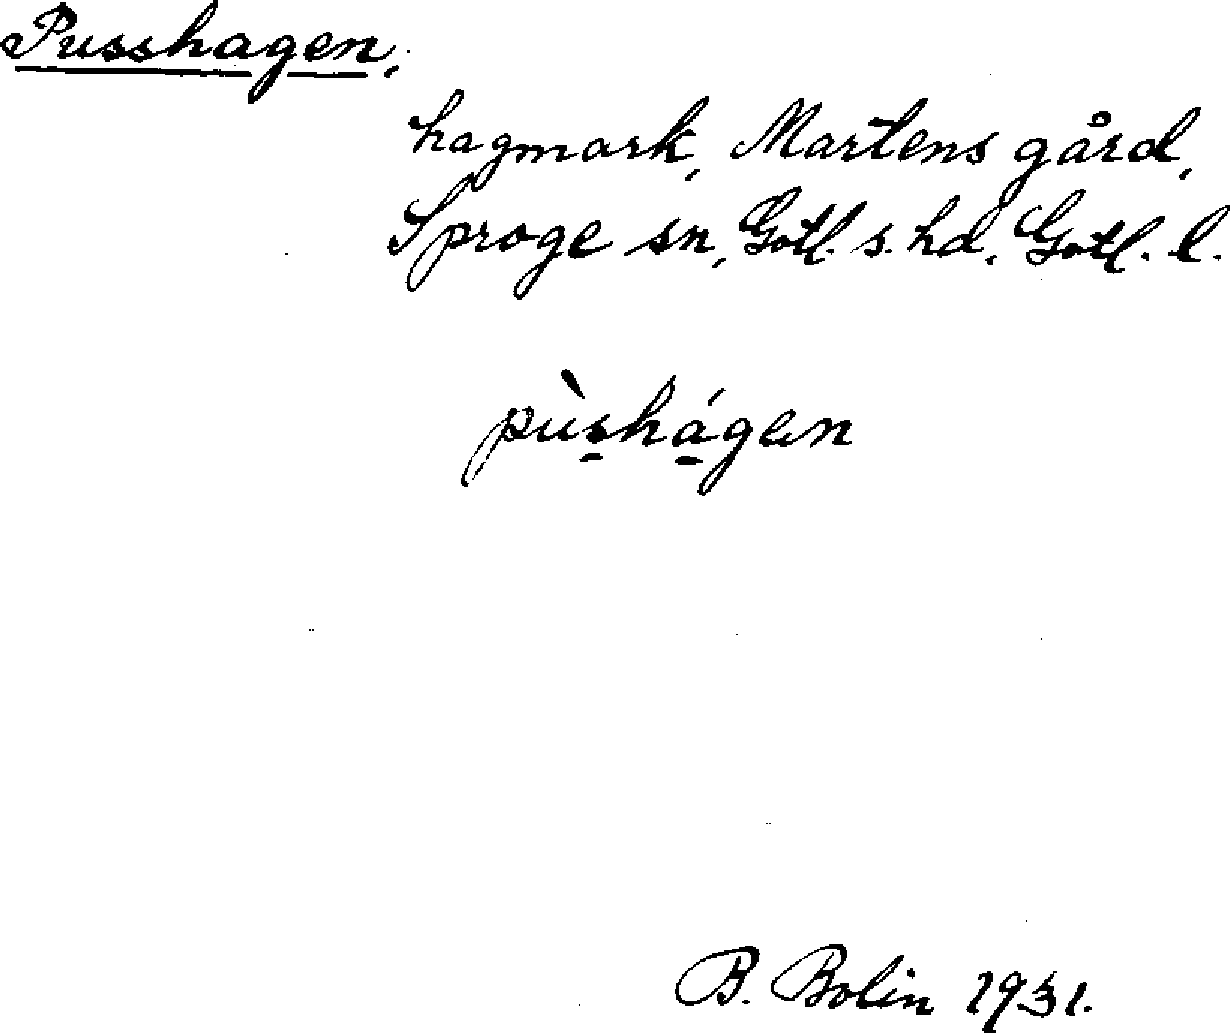 Pusshagen,
hagmark, Martens gård,
Sproge sn, Gotl. s. hd, Gotl. l.
pùs̱há̱gen
B. Bolin 1931.